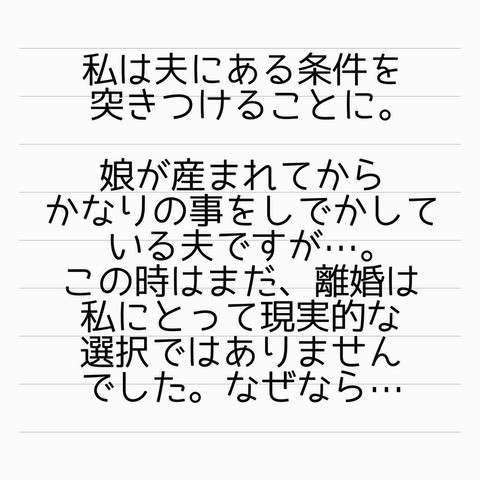 私は夫にある条件を
突きつけることに。
娘が産まれてから
かなりの事をしでかして
いる夫ですが…。
この時はまだ、離婚は
私にとって現実的な
選択ではありません
でした。なぜなら…